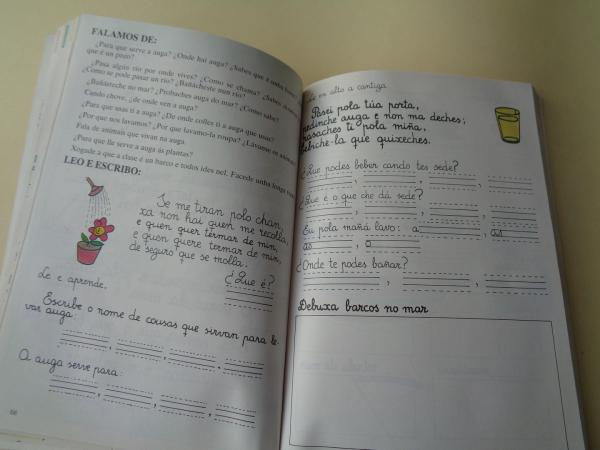 FALAMOS DE:
¿Para que serve a auga? ¿Onde hai auga? ¿Sabes que é unha
que é un pozo?
¿Pasa algún río por onde vives? ¿Como se chama? ¿Sabes
¿Como se pode pasar un río? ¿Bañácheste nun río?
¿Bañácheste no mar? ¿Probaches auga do mar? ¿Como sabe?
Cando chove, ¿de onde ven a auga?
¿Para que usas ti a auga? ¿De onde colles ti a auga que usas?
¿Por que nos lavamos? ¿Por que lavamo-la roupa? ¿Lávanse os animais
Fala de animais que vivan na auga.
¿Para que lle serve a auga ás plantas?
Xogade a que a clase é un barco e todos ides nel. Facede unha longa
LEO E ESCRIBO:
Se me tiran polo chan,
xa non hai quen me recolla,
e quen quer termar de min,
e quen quere termar de min,
de seguro que se molla.
¿Que é?
Le e aprende.
Escribe o nome de cousas que sirvan para le-
var auga:
A auga serve para:
66
en alto a cantiga
Pasei pola túa porta,
pedinche auga e non ma deches;
pasaches ti pola miña,
fabíche-la que quixeches.
¿Que podes beber cando tes sede?
¿Que é o que che dá sede?
Eu pola mañá lavo: a , as
as , o
¿Onde te podes bañar?
Debuxa barcos no mar